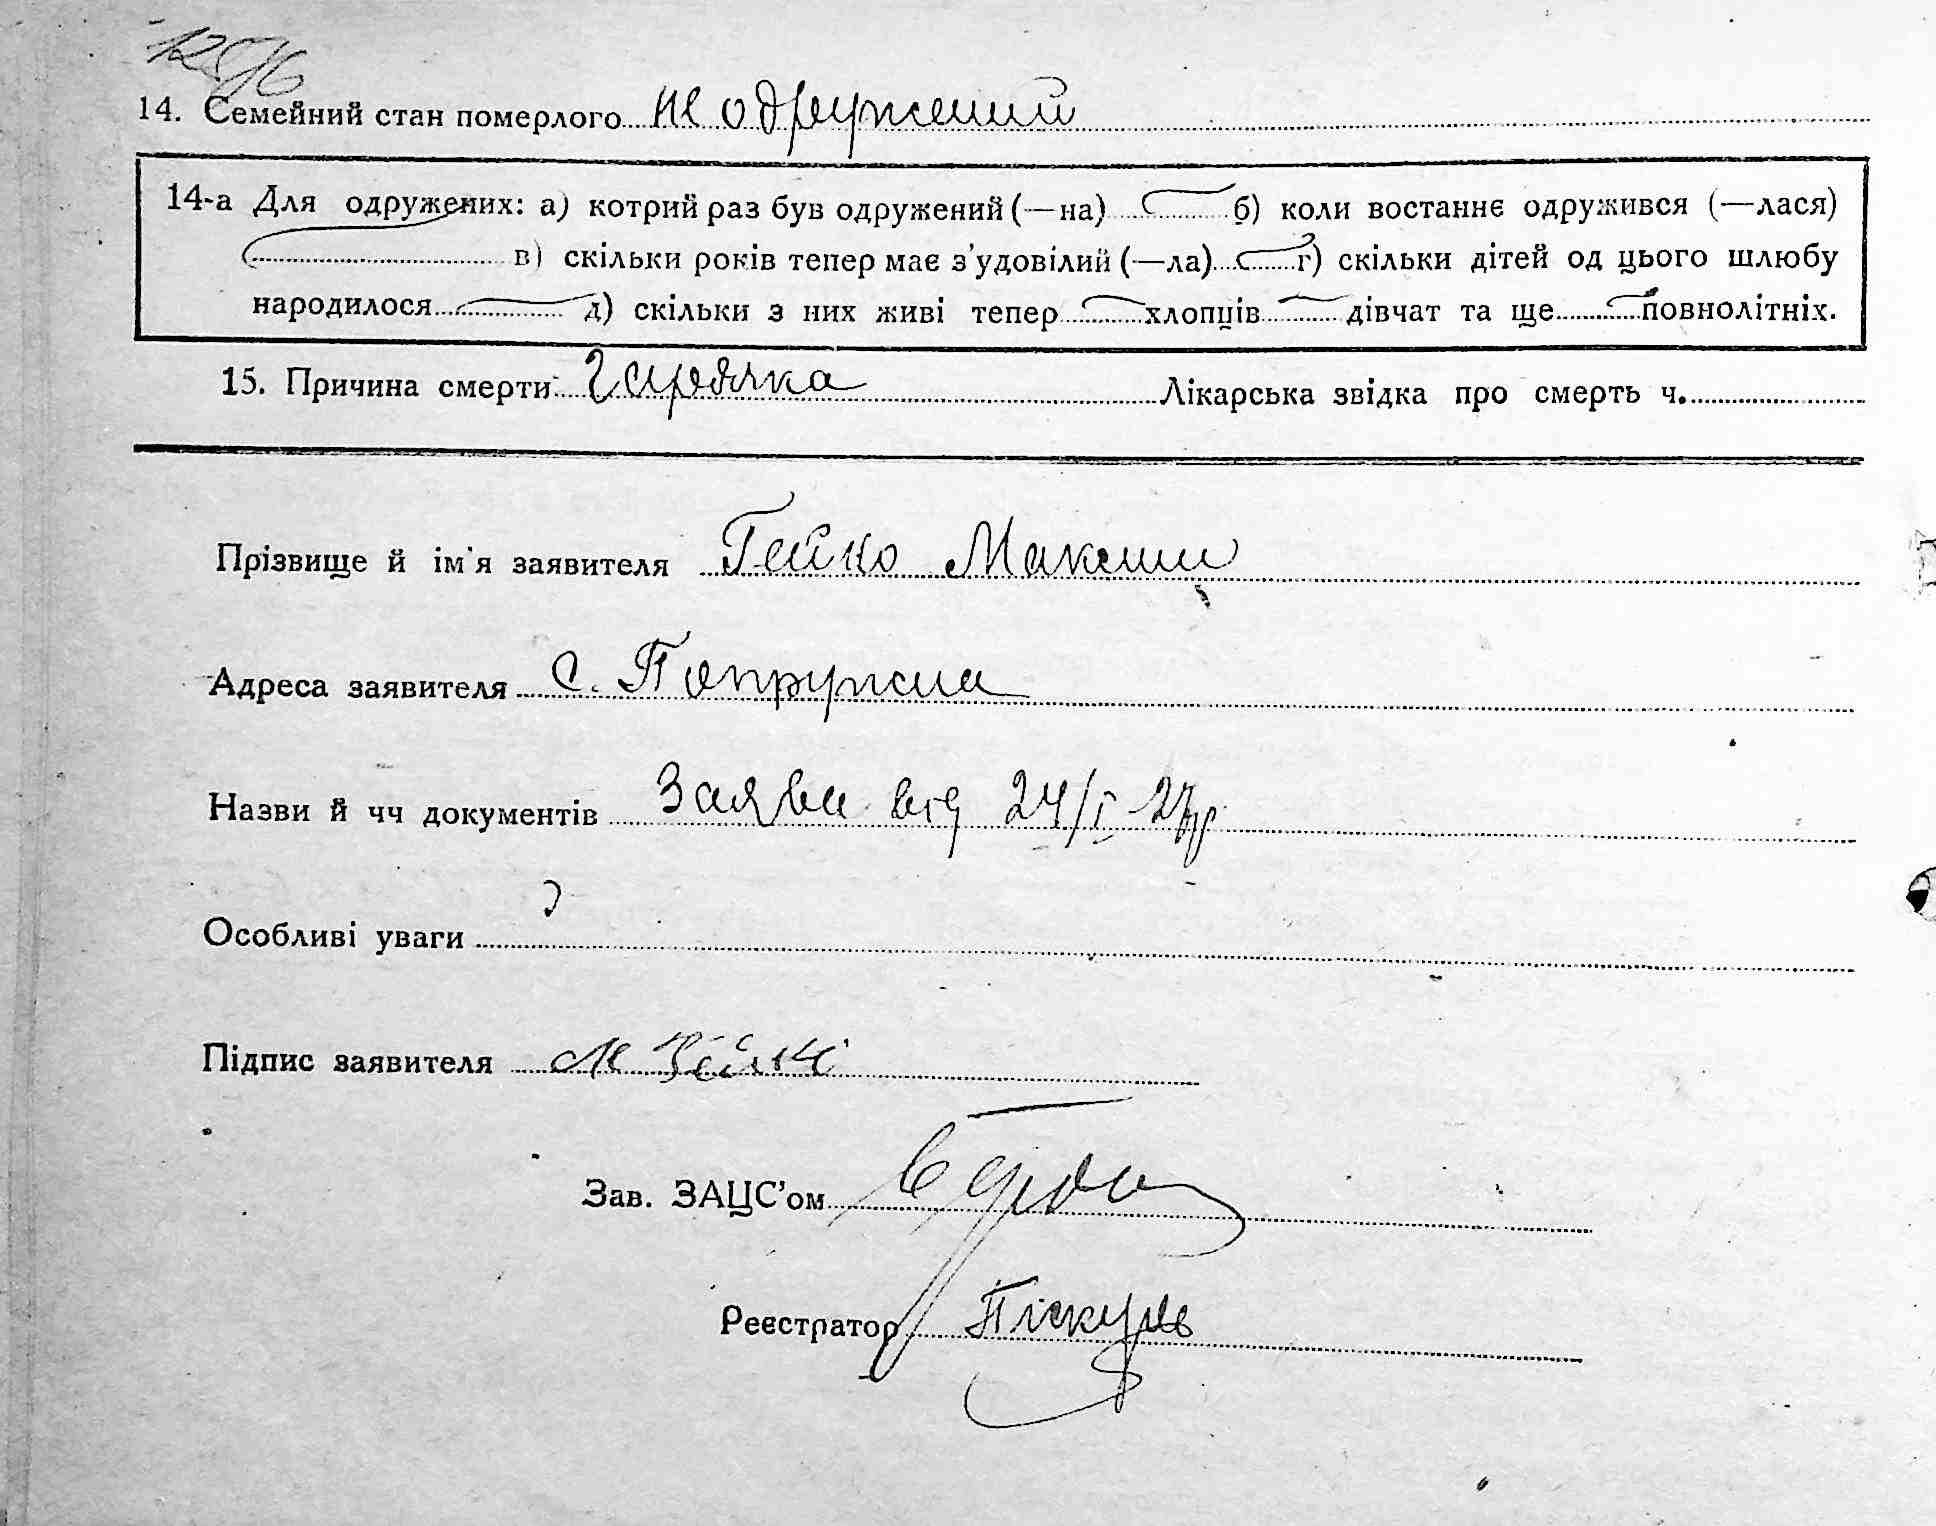 14. Семейний стан померлого не одружений
14-а Для одружених: а) котрий раз був одружений (—на) б) коли востаннє одружився (—лася)
в) скільки років тепер має з'удовілий (—ла) г) скільки дітей од цього шлюбу
народилося д) скільки з них живі тепер хлопців дівчат та ще повнолітніх.
15. Причина смерти гарячка Лікарська звідка про смерть ч.
Прізвище й ім'я заявителя Гейко Максим
Адреса заявителя с. Попружна
Назви й чч документів Заява від 24/I-27р
Особливі уваги
Підпис заявителя М Гейко
Зав. ЗАЦС'ом
Реєстратор